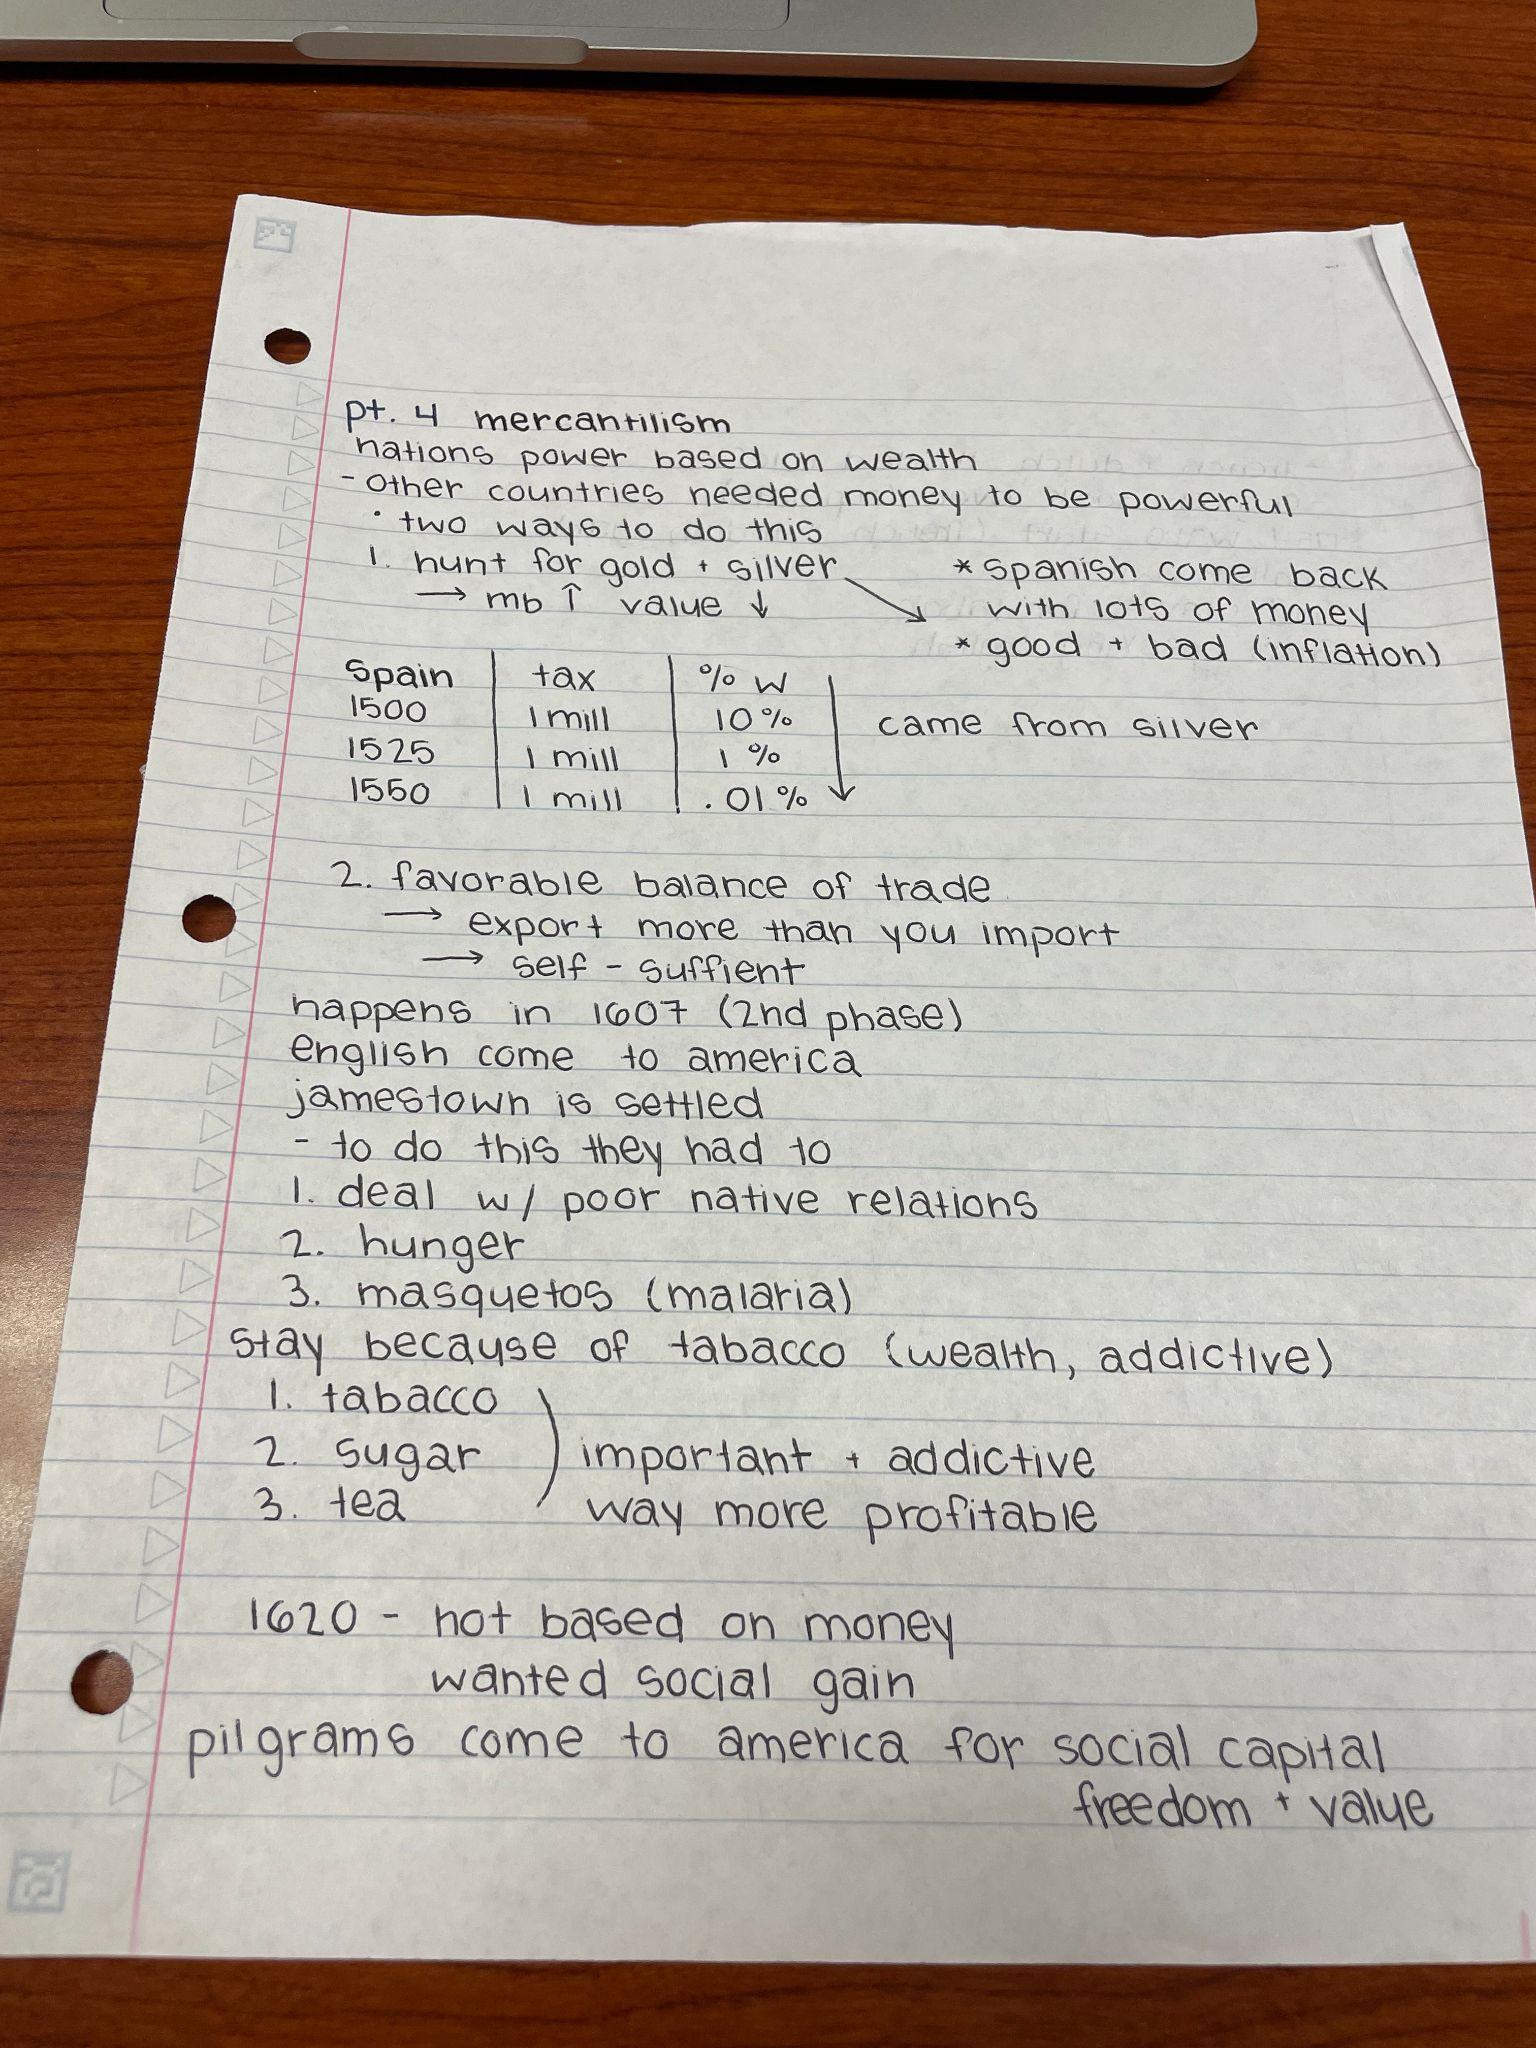 pt. 4 mercantilism
nations power based on wealth
- other countries needed money to be powerful
· two ways to do this
1. hunt for gold + silver
→ mb ↑ value ↓
* spanish come back
with lots of money
* good + bad (inflation)
spain tax % w
1500 1 mill 10%
1525 1 mill 1%
1550 1 mill .01%
came from silver
2. favorable balance of trade
→ export more than you import
→ self - suffient
happens in 1607 (2nd phase)
english come to america
jamestown is settled
- to do this they had to
1. deal w/ poor native relations
2. hunger
3. masquetos (malaria)
stay because of tabacco (wealth, addictive)
1. tabacco
2. sugar
3. tea
important + addictive
way more profitable
1620 - not based on money
wanted social gain
pilgrams come to america for social capital
freedom + value